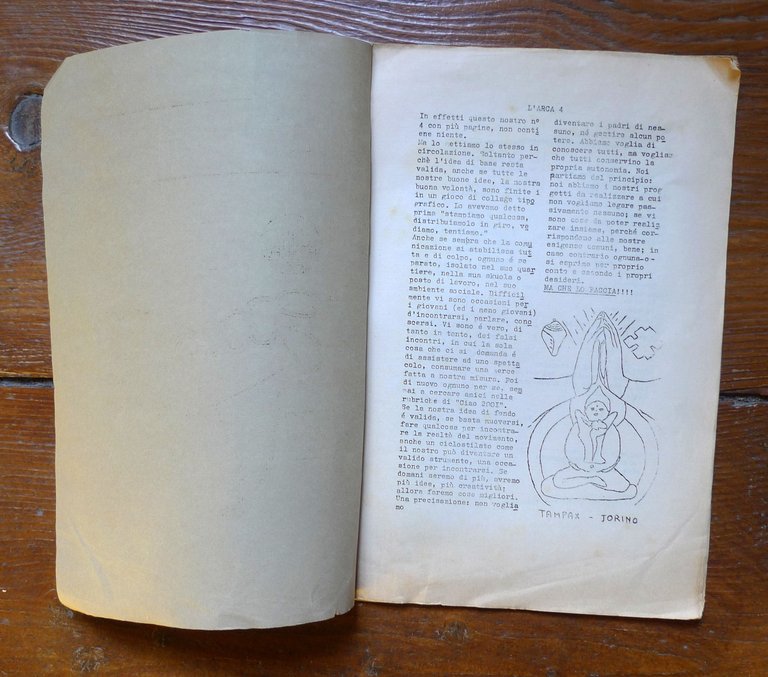 L'ARCA 4
In effetti questo nostro n°
4 con più pagine, non conti
ene niente.
Ma lo mettiamo lo stesso in
circolazione. Soltanto per-
chè l'idea di base resta
valida, anche se tutte le
nostre buone idee, la nostra
buona volontà, sono finite i
in un gioco di collage tipo
grafico. Lo avevamo detto
prima "stampiamo qualcosa,
distribuiamolo in giro, ve
diamo, tentiamo."
Anche se sembra che la comu
nicazione si stabilisca tut
ta e di colpo, ognuno é se
parato, isolato nel suo quar
tiere, nella sua skuola o
posto di lavoro, nel suo
ambiente sociale. Difficil
mente vi sono occasioni per
i giovani (ed i meno giovani)
d'incontrarsi, parlare, cono
scersi. Vi sono é vero, di
tanto in tanto, dei falsi
incontri, in cui la sola
cosa che ci si domanda é
di assistere ad uno spetta
colo, consumare una merce
fatta a nostra misura. Poi
di nuovo ognuno per se, sem
mai a cercare amici nelle
rubriche di "Ciao 2001".
Se la nostra idea di fondo
é valida, se basta muoversi,
fare qualcosa per incontra-
re la realtà del movimento,
anche un ciclostilato come
il nostro può diventare un
valido strumento, una occa
sione per incontrarsi. Se
domani saremo di più, avremo
più idee, più creatività;
allora faremo cose migliori.
Una precisazione: non voglia
mo
diventare i padri di nes-
suno, nè gestire alcun po
tere. Abbiamo voglia di
conoscere tutti, ma vogliam
che tutti conservino la
propria autonomia. Noi
partiamo dal principio:
noi abbiamo i nostri prog
getti da realizzare a cui
non vogliamo legare pas-
sivamente nessuno; se vi
sono cose da poter realiz
zare insieme, perché cor-
rispondono alle nostre
esigenze comuni, bene; in
caso contrario ognuna-o-
si esprima per proprio
conto e secondo i propri
desideri.
MA CHE LO FACCIA!!!!
TAMPAX - JORINO